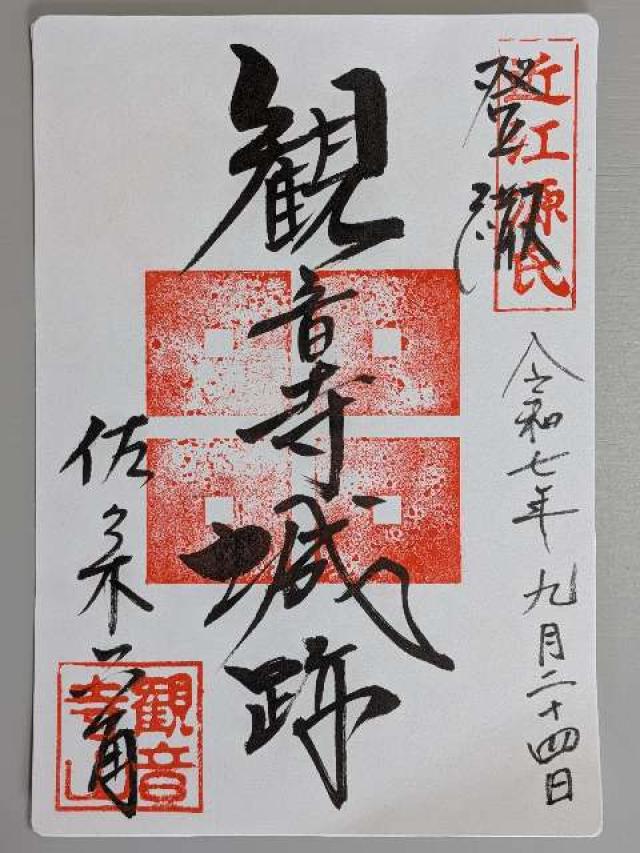 登城
近江源氏
令和七年九月二十四日
観音寺城跡
佐々木六角
観音寺山